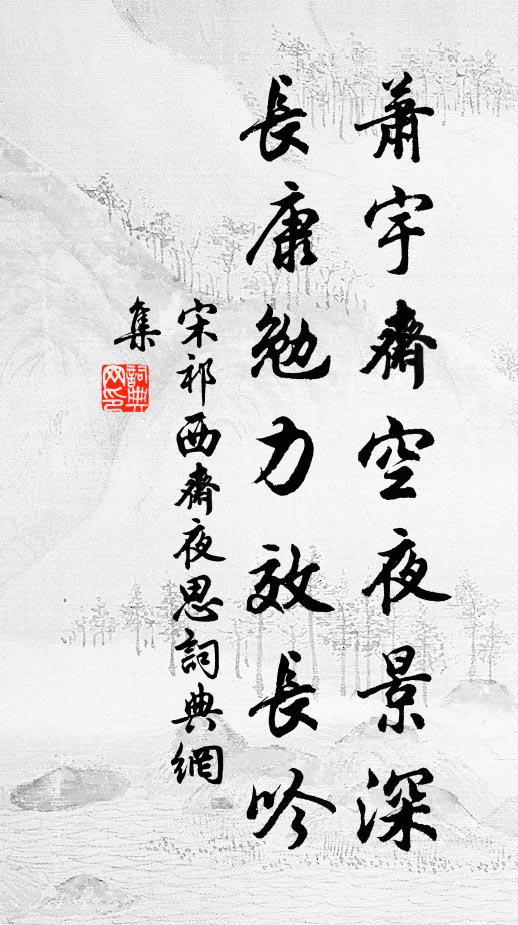 蕭宇齋空夜景深
長康勉力效長吟
宋祁西齋夜思詞典網
集
詞典
网印